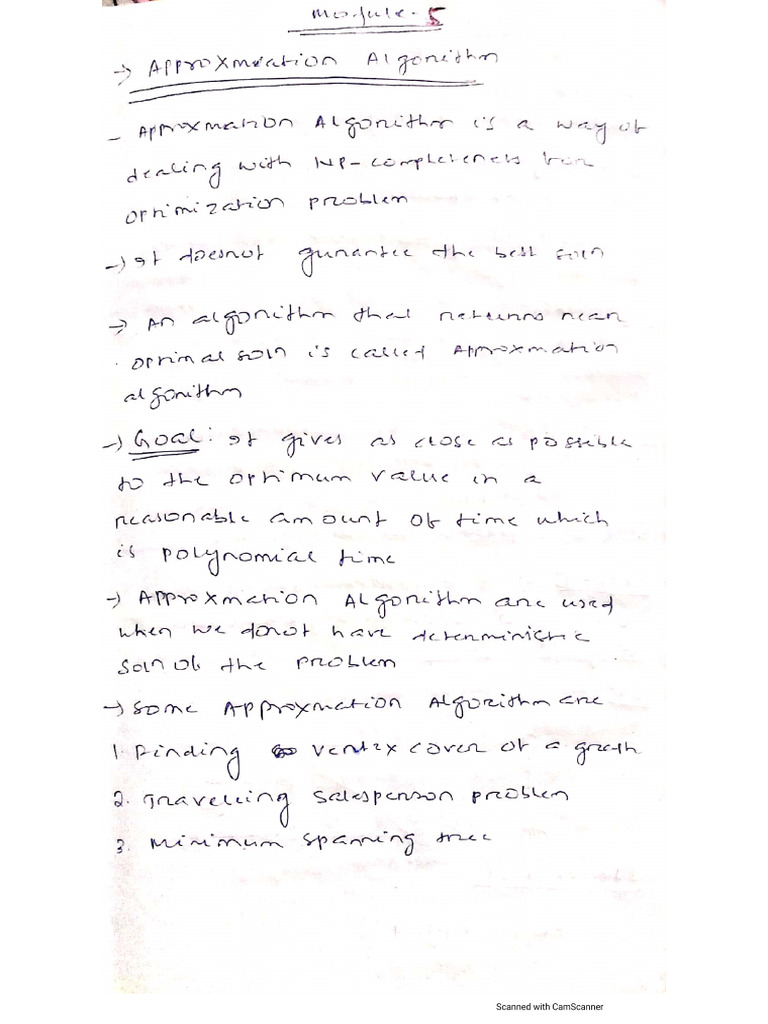 Module-5
→ Approxmation Algorithm
- Approxmation Algorithm is a way of
dealing with NP-completeness for
optimization problem
→ It doesnot gurantee the best soln
→ An algorithm that returns near
optimal soln is called Approxmation
algorithm
→ Goal: It gives as close as possible
to the optimum value in a
reasonable amount of time which
is polynomial time
→ Approxmation Algorithm are used
when we donot have deterministic
soln of the problem
→ Some Approxmation Algorithm are
1. Finding vertex cover of a graph
2. Travelling salesperson problem
3. Minimum spanning tree
Scanned with CamScanner